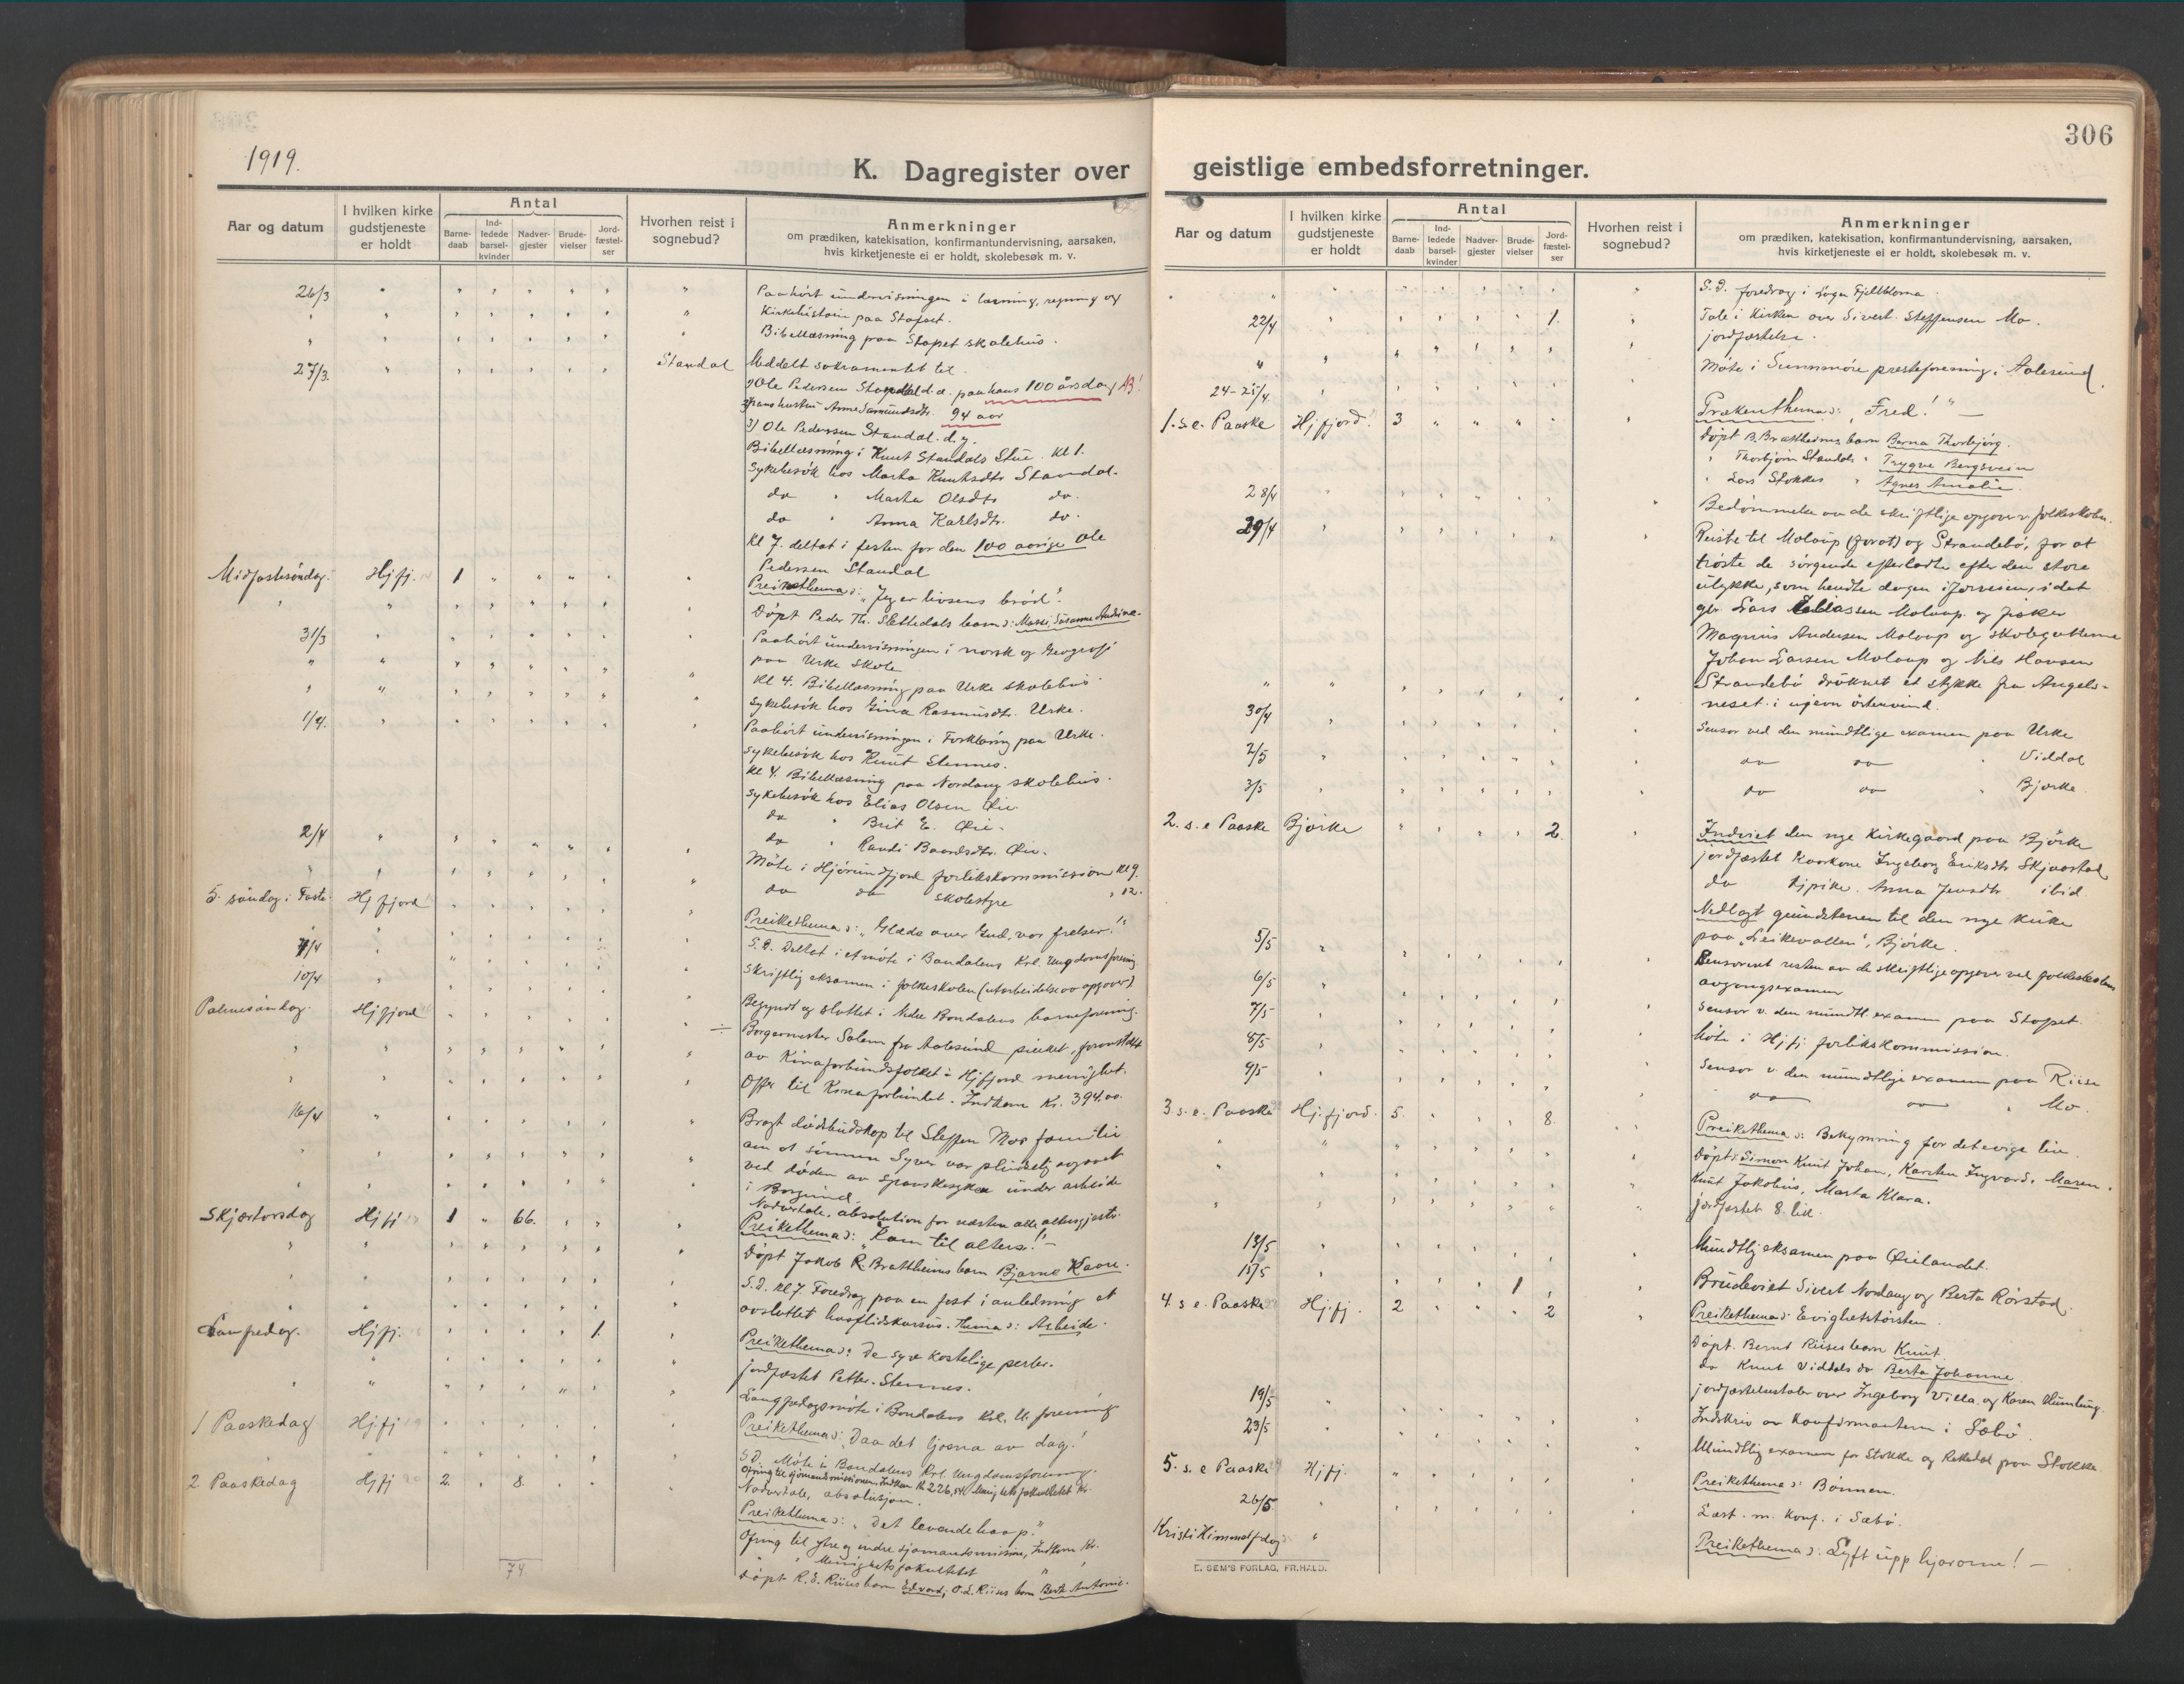 1919.
K. Dagregister over
Aar og datum
I hvilken kirke gudstjeneste er holdt
Antal
Barnedaab
Indledede barselkvinder
Nadvergjester
Brudevielser
Jordfæstelser
Hvorhen reist i sognebud?
Anmerkninger
om prædiken, katekisation, konfirmantundervisning, aarsaken,
hvis kirketjeneste ei er holdt, skolebesøk m. v.
26/3 Paahört undervisningen i læsning, regning og
Kirkehistorie paa Stapset.
Bibellæsning paa Stapet skolehus.
27/3. Standal Meddelt sakramentet til
1) Ole Pedersen Standal d.æ. paa hans 100 årsdag NB!
2) hans hustru Anne Samundsdtr. 94 aar
3) Ole Pedersen Standal. d.y.
Bibellæsning i Knut Standals Stue. Kl 1.
Sykebesök hos Marta Knutsdtr Standal.
do " Marta Olsdtr do.
do " Anna Karlsdtr. do.
Kl 7. deltat i festen for den 100 aarige Ole
Pedersen Standal
Midfastesöndag. Hjfj. 1 Preikethema: "Jeg er livsens bröd".
Döpt Peder Th. Slettedals barn:
31/3 Paahört undervisningen i norsk og Geografi
paa Urke skole
Kl 4. Bibellæsning paa Urke skolehus
Sykebesök hos Gina Rasmusdtr. Urke.
1/4. Paahört undervisningen i Forklaring paa Urke.
Sykebesök hos Knut Stennes.
Kl 4. Bibellæsning paa Nordang skolehus.
Sykebesök hos Elias Olsen Øie
do " Brit E. Øie.
do " Randi Baardsdtr. Øie.
2/4 Möte i Hjörundfjord forlikskommission Kl 9.
do do skolestyre " 12.
5. söndag i Faste Hjfjord Preikethema: "Glæde over Gud, vor frelser!"
S.D. Deltat i et möte i Bondalens Krl. Ungdomsforening
7/4 Skriftlig eksamen i folkeskolen (utarbeidelse av opgaver)
10/4 Begyndt og sluttet i Nedre Bondalens barneforening.
Palmesöndag. Hjfjord ÷ Borgermester Solem fra Aalesund
av Kinaforbundsfolket i Hjfjord menighet.
Offer til Kinaforbundet. Indkom Kr. 394.00.
16/4 Bragt dödsbudskap til Steffen Mos familie
om at sönnen Syver var pludselig
ved döden av Spanskesyken under arbeide
i Borgund.
Skjærtorsdag Hjfj 1 66. absolution for næsten alle altergjester.
Preikethema: "Kom til alters!" —
Döpt Jakob R. Brattheims barn Bjarne Kaare.
S.D. Kl 7. Foredrag paa en fest i anledning et
avsluttet husflidskursus. Thema: Arbeide.
Langfredag. Hjfj. 1. Preikethema: De syv kostelige perler.
jordfæstet Petter. Stennes.
Langfredagsmöte i Bondalens Krl. U. forening
1 Paaskedag Hjfj Preikethema: Daa det ljosna av dag!
S.D. Möte i Bondalens Krl. Ungdomsforening.
2 Paaskedag Hjfj 2. 8. absolusjon.
Preikethema: "Det levande haap."
Ofring til ytre og indre sjömandsmission, Indkom Kr.
" " Menighetsfakultetet "
döpt R. E. Riises barn Edvard, O. L. Riises barn Berta Antonie.
74
306
geistlige embedsforretninger.
Aar og datum
I hvilken kirke gudstjeneste er holdt
Antal
Barnedaab
Indledede barselkvinder
Nadvergjester
Brudevielser
Jordfæstelser
Hvorhen reist i sognebud?
Anmerkninger
om prædiken, katekisation, konfirmantundervisning, aarsaken,
hvis kirketjeneste ei er holdt, skolebesøk m. v.
S.D. foredrag i Fjellbloma
22/4 1. Tale i Kirken over Sivert Steffensen Mo.
jordfæstelse.
24-25/4. Möte i Sunnmöre presteforening i Aalesund.
1. s. e. Paaske Hjfjord. 3 "Fred!" —
Döpt B. Brattheims barn Berna Thorbjörg.
" Thorbjörn Standals " Trygve Bergsvein
" Lars Stokkes " Agnes Amalie.
28/4 Bedömmelse av de skriftlige opgaver v. folkeskolen.
29/4 Reiste til Molaup og Strandebö, for at
tröste de sörgende efterladte efter den store
ulykke, som hendte dagen iforveien, idet
gbr. Lars Eliassen Molaup og fisker
Magnus Andersen Molaup og skolegutterne
Johan Larsen Molaup og Nils Hansen
Strandebö druknet et stykke fra Angelsneset
i ujevn östenvind.
30/4 Sensor ved den mundtlige examen paa Urke
2/5 do do " Viddal
3/5 do do " Bjørke
2. s. e Paaske Bjørke 2. Indviet den nye Kirkegaard paa Bjørke
jordfæstet Kaarkone Ingeborg Eriksdtr Skjaastad
do Anna Jensdtr ibid
Nedlagt grundstenen til den nye kirke
paa "Leikevollen", Bjørke.
5/5 Sensureret resten av de skriftlige opgaver ved folkeskolens
avgangsexamen
6/5 Sensor v. den mundtl. examen paa Stapet.
7/5 Möte i Hjfj. forlikskommission.
8/5 Sensor v. den mundtlige examen paa Riise
9/5 do do " Mo.
3. s. e. Paaske Hj.fjord. 5. 8. Preikethema: Bekymring for det evige liv.
Döpt: Simon Knut Johan, Karsten Ingvard, Maren.
Knut Jakobus, Marta Klara.
jordfæstet 8. lik.
13/5 Mundtlig eksamen paa Øielandet.
15/5 1 Brudeviet Sivert Nordang og Berta Rörstad.
4. s e. Paaske Hjfj. 2 2 Preikethema: Evighetstörsten.
Döpt. Bernt Riises barn Knut.
do Knut Viddals do Berta Johanne.
jordfæstelsestaler over Ingeborg Villa og Karen Humlung.
19/5 Indskriv av konfirmanterne i Sæbö.
23/5 Mundtlig examen for Stokke og Rekkedal paa Stokke.
5. s. e Paaske Hjfj. Preikethema: Bönnen.
26/5 Læst. m. Konf. i Sæbö.
Kristi Himmelf.dag " Preikethema: Lyft upp hjorome! —
E. SEM'S FORLAG, FR.HALD.